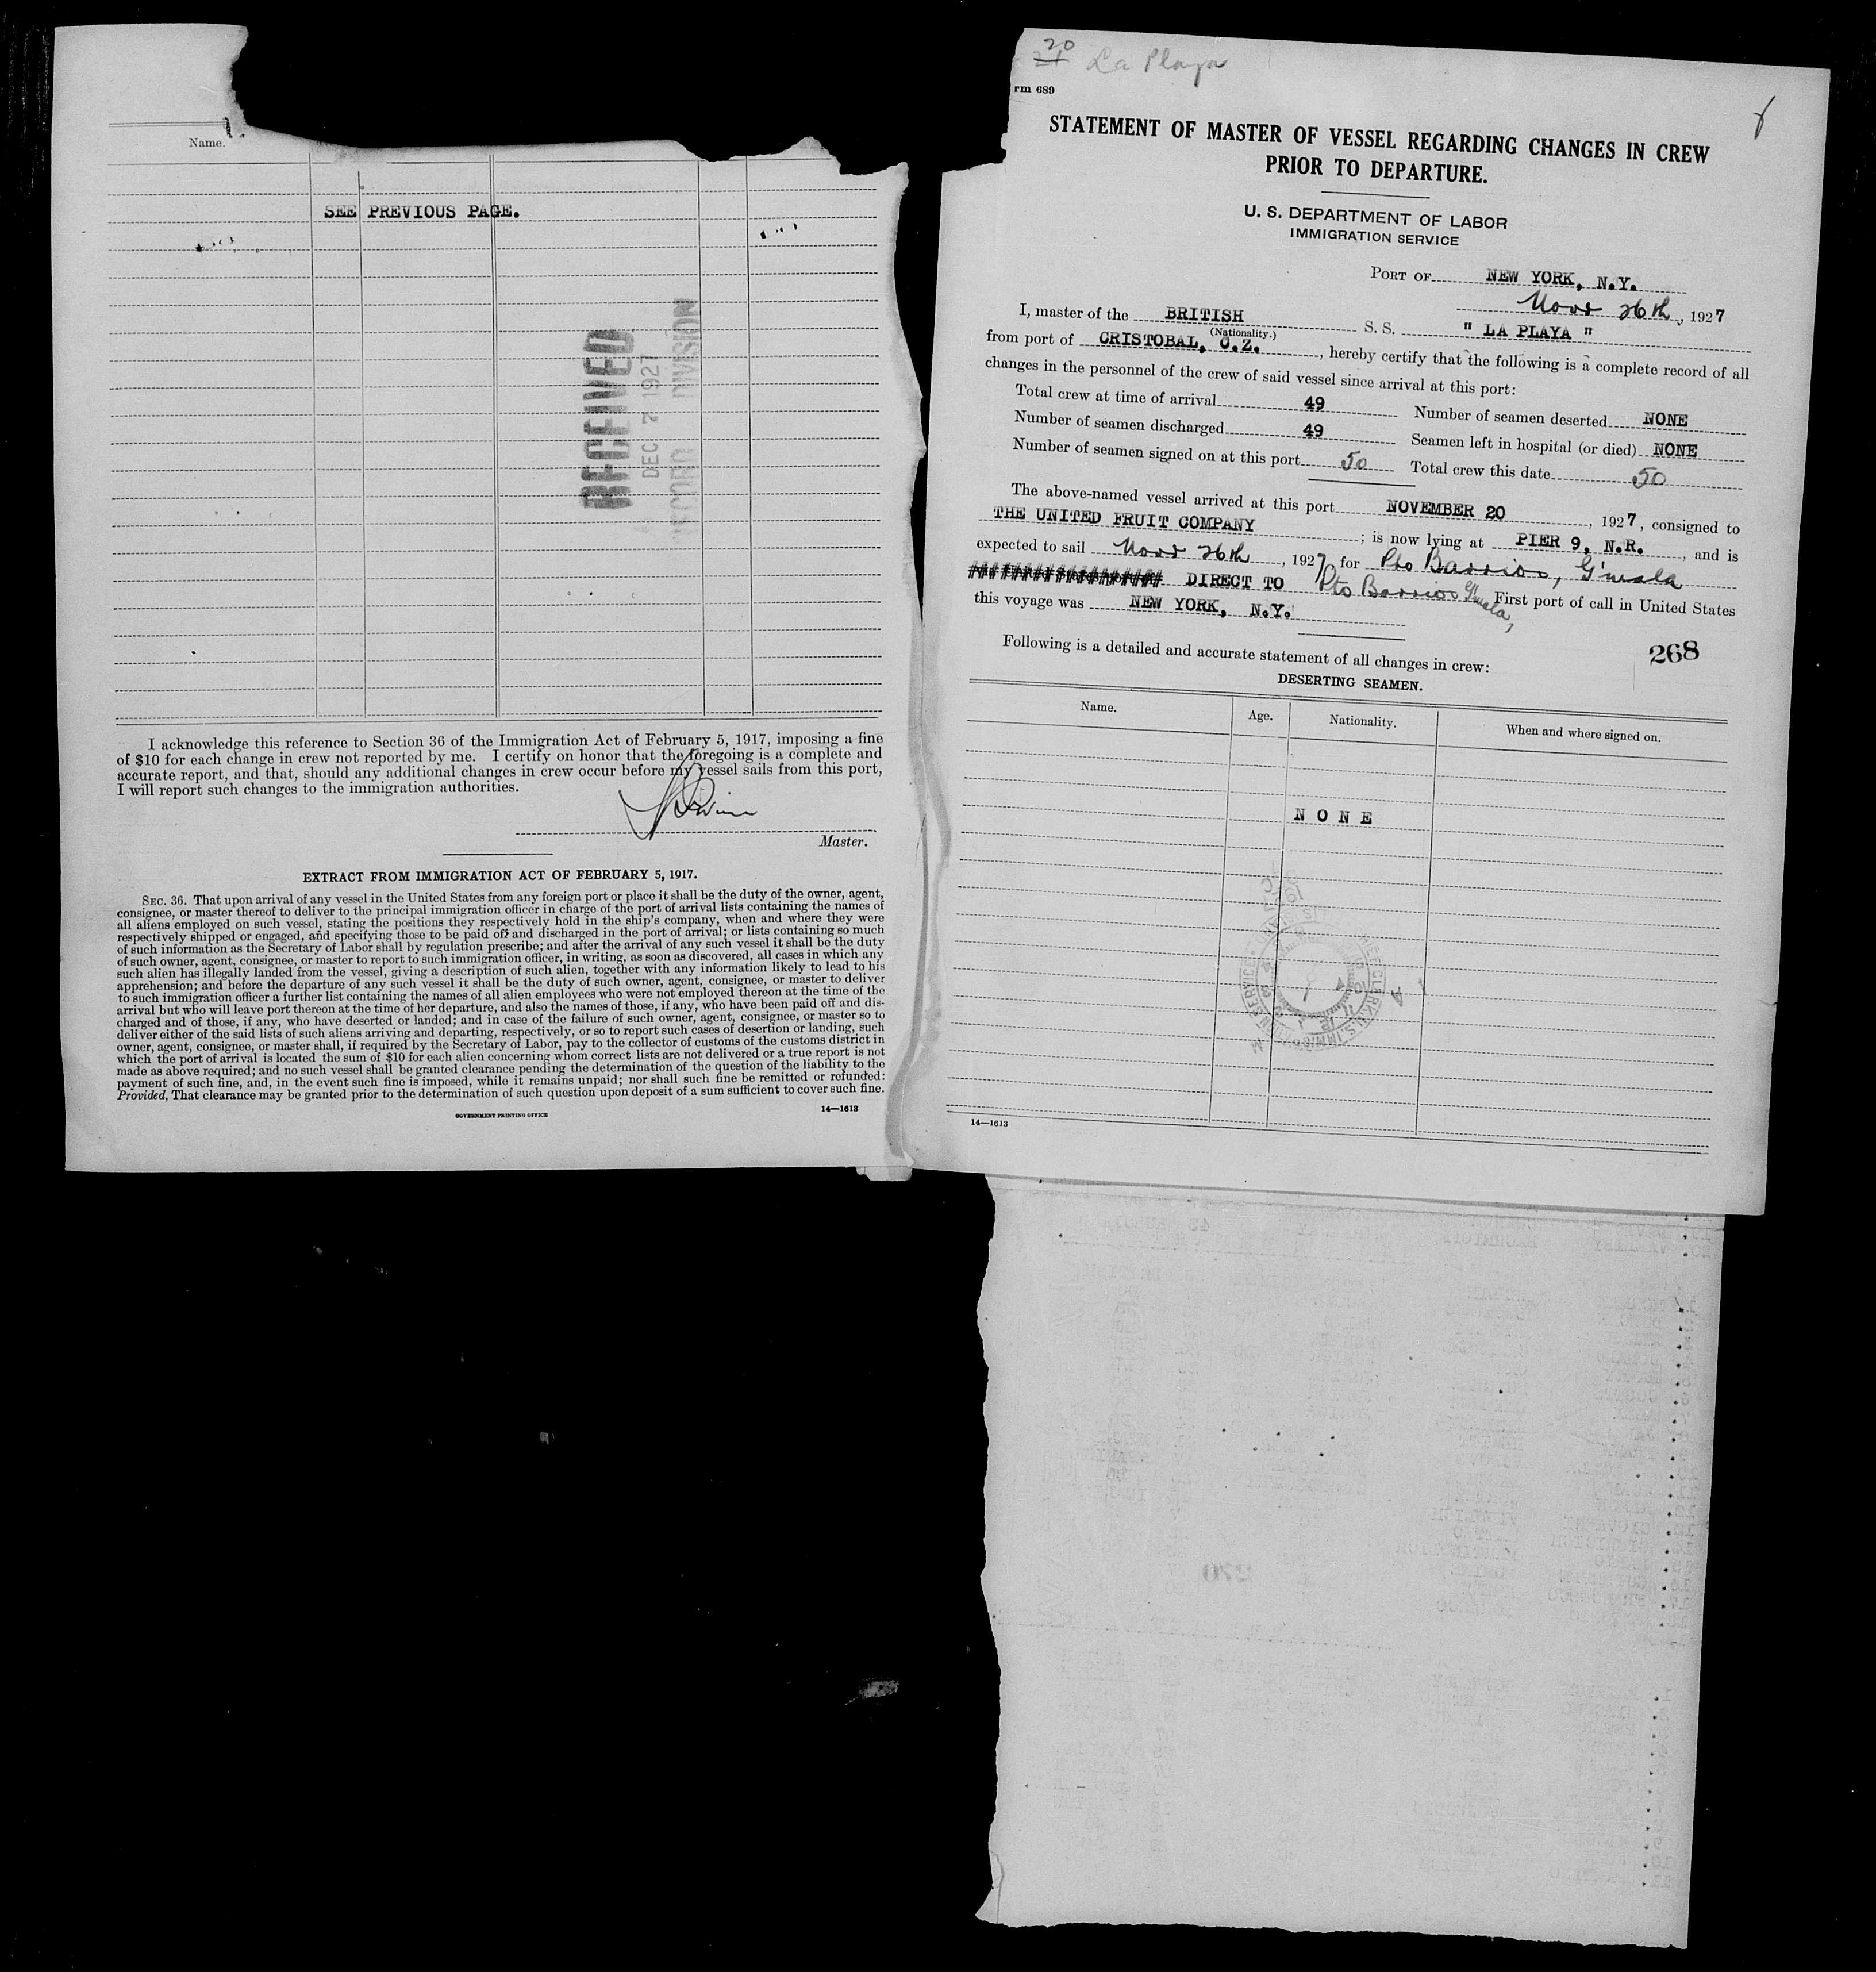 Name.
SEE PREVIOUS PAGE.
RECEIVED
DEC 7 1927
RECORD DIVISION
I acknowledge this reference to Section 36 of the Immigration Act of February 5, 1917, imposing a fine
of $10 for each change in crew not reported by me. I certify on honor that the foregoing is a complete and
accurate report, and that, should any additional changes in crew occur before my vessel sails from this port,
I will report such changes to the immigration authorities.
Master.
EXTRACT FROM IMMIGRATION ACT OF FEBRUARY 5, 1917.
SEC. 36. That upon arrival of any vessel in the United States from any foreign port or place it shall be the duty of the owner, agent,
consignee, or master thereof to deliver to the principal immigration officer in charge of the port of arrival lists containing the names of
all aliens employed on such vessel, stating the positions they respectively hold in the ship's company, when and where they were
respectively shipped or engaged, and specifying those to be paid off and discharged in the port of arrival; or lists containing so much
of such information as the Secretary of Labor shall by regulation prescribe; and after the arrival of any such vessel it shall be the duty
of such owner, agent, consignee, or master to report to such immigration officer, in writing, as soon as discovered, all cases in which any
such alien has illegally landed from the vessel, giving a description of such alien, together with any information likely to lead to his
apprehension; and before the departure of any such vessel it shall be the duty of such owner, agent, consignee, or master to deliver
to such immigration officer a further list containing the names of all alien employees who were not employed thereon at the time of the
arrival but who will leave port thereon at the time of her departure, and also the names of those, if any, who have been paid off and dis-
charged and of those, if any, who have deserted or landed; and in case of the failure of such owner, agent, consignee, or master so to
deliver either of the said lists of such aliens arriving and departing, respectively, or so to report such cases of desertion or landing, such
owner, agent, consignee, or master shall, if required by the Secretary of Labor, pay to the collector of customs of the customs district in
which the port of arrival is located the sum of $10 for each alien concerning whom correct lists are not delivered or a true report is not
made as above required; and no such vessel shall be granted clearance pending the determination of the question of the liability to the
payment of such fine, and, in the event such fine is imposed, while it remains unpaid; nor shall such fine be remitted or refunded:
Provided, That clearance may be granted prior to the determination of such question upon deposit of a sum sufficient to cover such fine.
GOVERNMENT PRINTING OFFICE 14—1613
20
21 La Playa
rm 689
STATEMENT OF MASTER OF VESSEL REGARDING CHANGES IN CREW
PRIOR TO DEPARTURE.
U. S. DEPARTMENT OF LABOR
IMMIGRATION SERVICE
PORT OF NEW YORK, N.Y.
Novr 26th, 1927
I, master of the BRITISH S. S. " LA PLAYA "
(Nationality.)
from port of CRISTOBAL, C.Z., hereby certify that the following is a complete record of all
changes in the personnel of the crew of said vessel since arrival at this port:
Total crew at time of arrival 49 Number of seamen deserted NONE
Number of seamen discharged 49 Seamen left in hospital (or died) NONE
Number of seamen signed on at this port 50 Total crew this date 50
The above-named vessel arrived at this port NOVEMBER 20, 1927, consigned to
THE UNITED FRUIT COMPANY; is now lying at PIER 9, N.R., and is
expected to sail Novr 26th, 1927 for Pto Barrios, G'mala
DIRECT TO Pto Barrios G'mala, First port of call in United States
this voyage was NEW YORK, N.Y.
268
Following is a detailed and accurate statement of all changes in crew:
DESERTING SEAMEN.
Name. Age. Nationality. When and where signed on.
NONE
14—1613
270